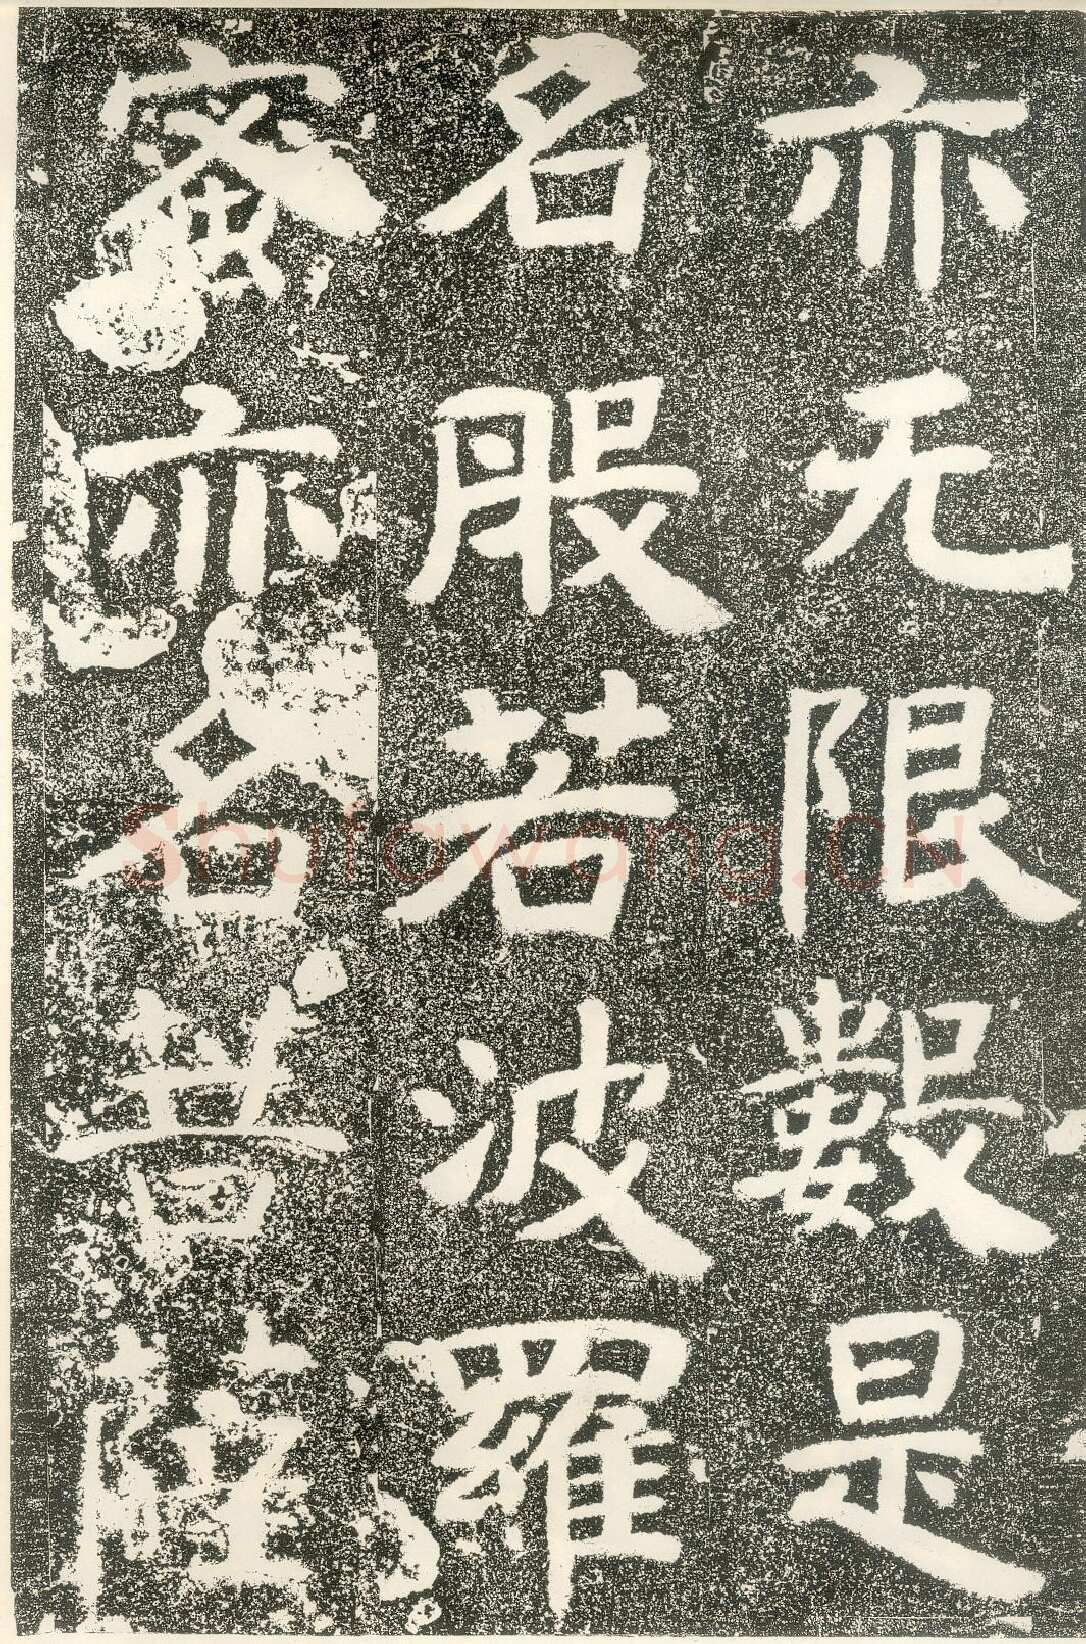 亦无限數是
名般若波羅
蜜亦名菩薩
Shufawang.CN